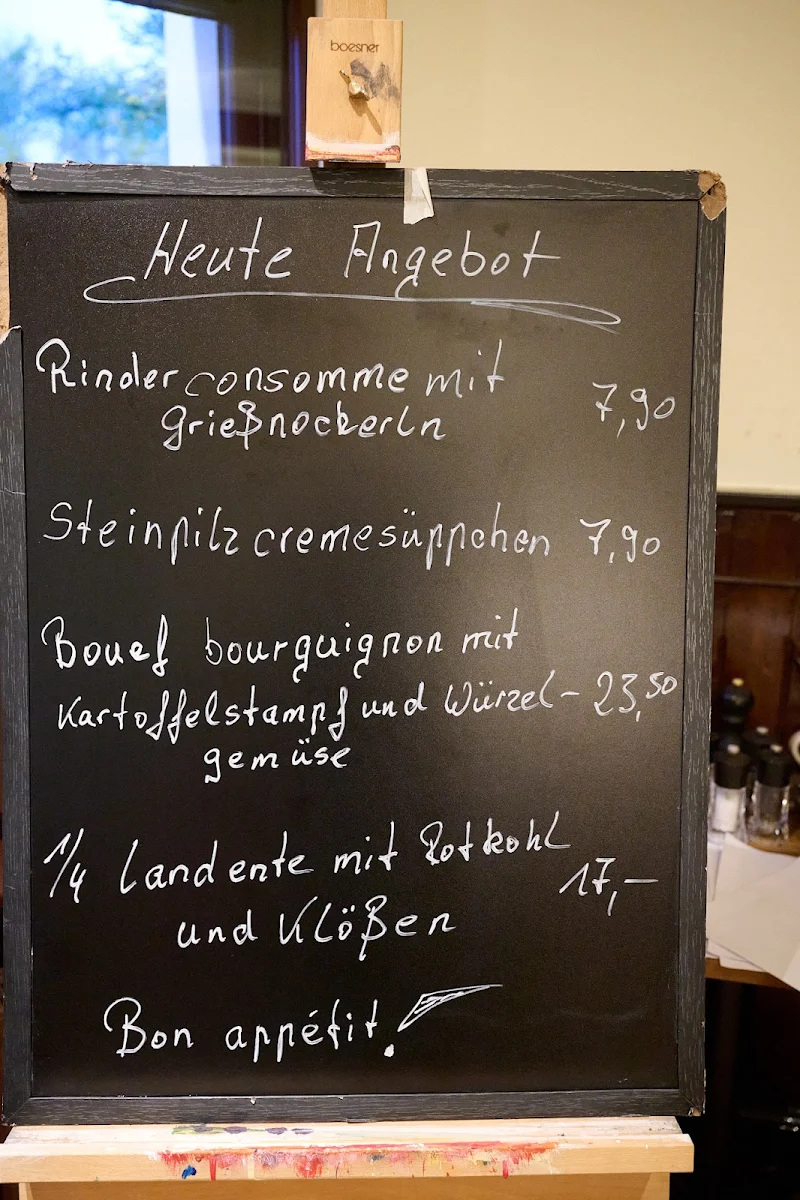 boesner
Heute Angebot
Rinderconsomme mit
Grießnockerln 7,90
Steinpilzcremesüppchen 7,90
Bouef bourguignon mit
Kartoffelstampf und Würzel- 23,50
gemüse
1/4 Landente mit Rotkohl
und Klößen 17,-
Bon appétit!